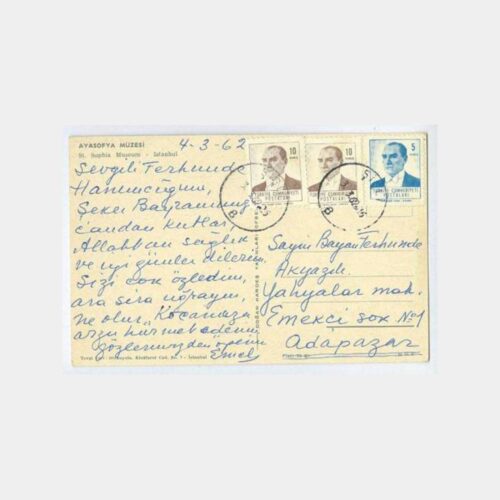 AYASOFYA MÜZESİ
St. Sophia Museum - Istanbul
4-3-62
Sevgili Ferhunde
Hanımcığım,
Şeker Bayramınızı
candan kutlar
Allahtan sağlık
ve iyi günler dilerim.
Sizi çok özledim,
ara sıra uğrayın
ne olur. Kocanıza
arzı hürmet ederim
gözlerinizden öperim
Emel
10
TÜRKİYE CUMHURİYETİ
POSTALARI
10
TÜRKİYE CUMHURİYETİ
POSTALARI
5
TÜRKİYE CUMHURİYETİ
POSTALARI
Sayın Bayan Ferhunde
Akyazılı
Yahyalar mah.
Emekçi sok No 1
Adapazar